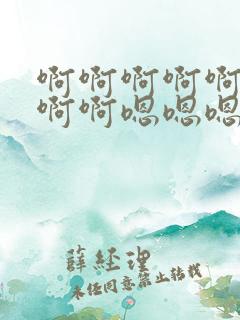 啊啊啊啊啊
啊啊嗯嗯嗯
薛经理
未经同意禁止转载